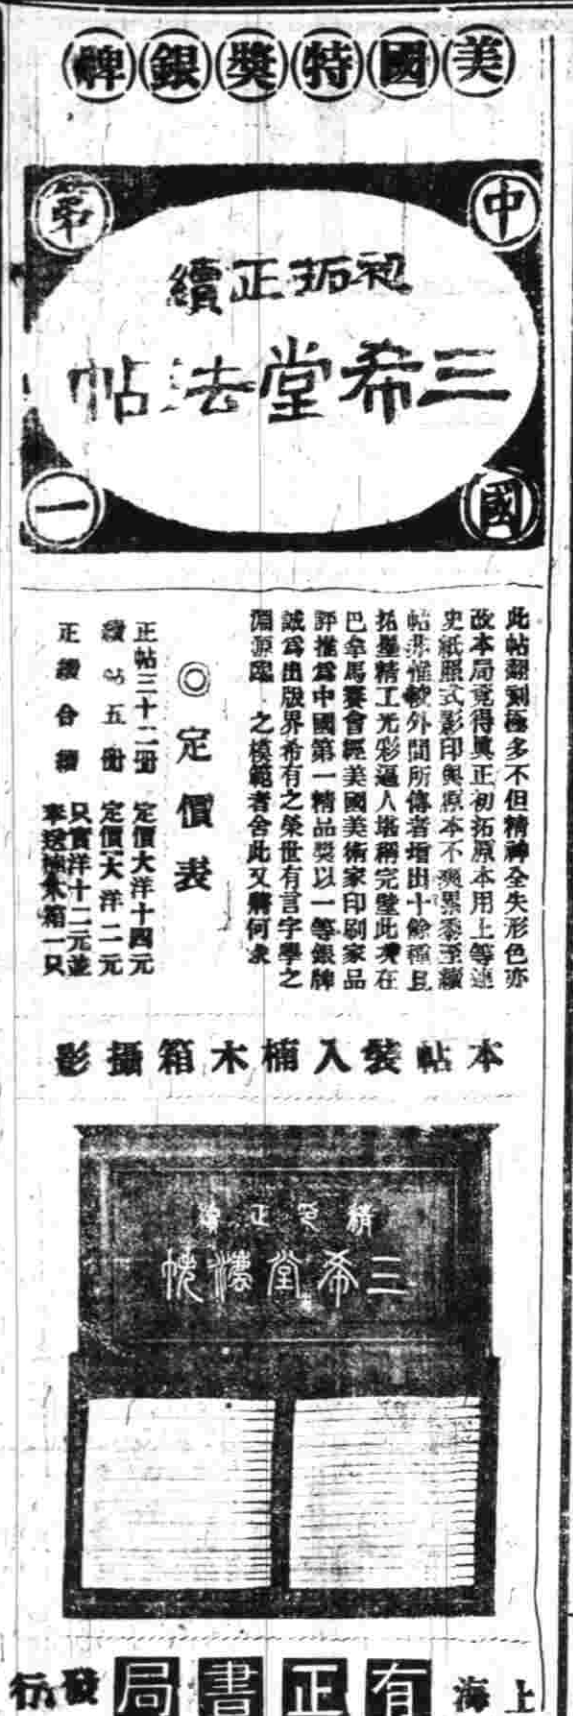 美國特獎銀牌
中國第一
初拓正續
三希堂法帖
此帖翻刻極多不但精神全失形色亦
改本局竟得眞正初拓原本用上等連
史紙照式影印與原本不爽累黍至續
帖非惟較外間所傳者增出十餘種且
拓墨精工光彩逼人堪稱完璧此次在
巴拿馬賽會經美國美術家印刷家品
評推爲中國第一精品獎以一等銀牌
誠爲出版界希有之榮世有言字學之
淵源臨之模範者舍此又將何求
◎定價表
正帖三十二册 定價大洋十四元
續帖五册 定價大洋二元
正續合購 只實洋十二元並
奉送楠木箱一只
本帖裝入楠木箱攝影
正續
三希堂法帖
上海有正書局發行